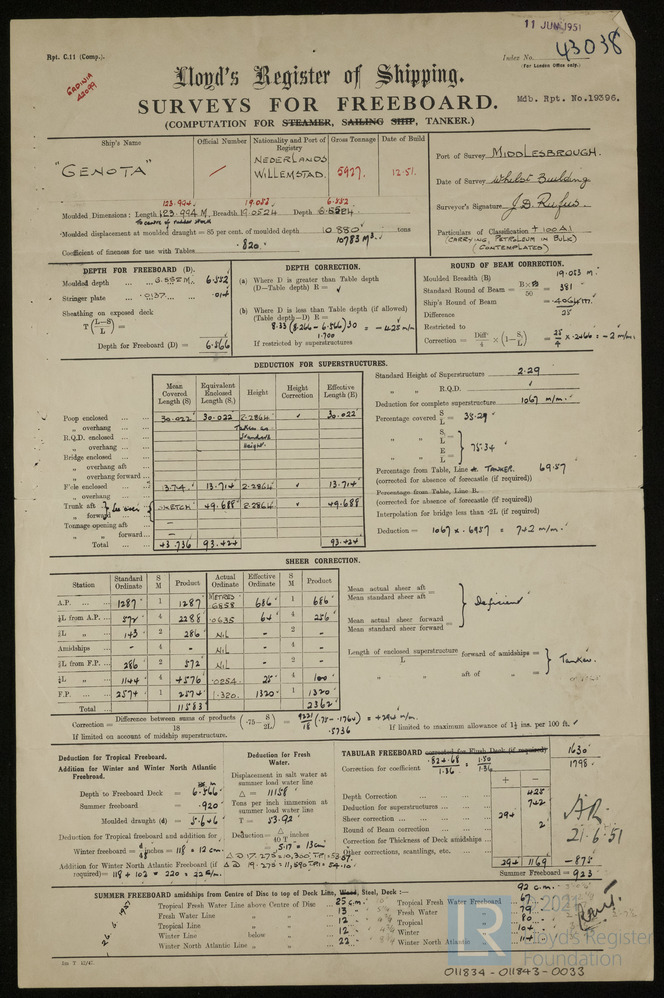 11 JUN 1951
Rpt. C.11 (Comp.).
Index No. 43038
(For London Office only.)
GADINIA
42099
Lloyd's Register of Shipping.
SURVEYS FOR FREEBOARD.
Mdb. Rpt. No.19396.
(COMPUTATION FOR STEAMER, SAILING SHIP, TANKER.)
Ship's Name Official Number Nationality and Port of Registry Gross Tonnage Date of Build
"GENOTA" / NEDERLANDS WILLEMSTAD. 5937. 12.51.
Port of Survey MIDDLESBROUGH.
Date of Survey Whilst Building
Surveyor's Signature J.D. Rufus.
Particulars of Classification + 100 A1
(CARRYING PETROLEUM IN BULK)
(CONTEMPLATED)
123.994 19.053 6.552
Moulded Dimensions: Length 123.994 M. Breadth 19.0524 Depth
to centre of rudder stock
Moulded displacement at moulded draught = 85 per cent. of moulded depth 10.880 tons
10783 M³.
Coefficient of fineness for use with Tables .820
DEPTH FOR FREEBOARD (D).
Moulded depth 6.552
Stringer plate .0137 .014
Sheathing on exposed deck
T(L-S/L) =
Depth for Freeboard (D) = 6.566
DEPTH CORRECTION.
(a) Where D is greater than Table depth
(D-Table depth) R =
(b) Where D is less than Table depth (if allowed)
(Table depth-D) R =
8.33 (8.266 - 6.566) 30 = - 425 m/m
1.700
If restricted by superstructures
ROUND OF BEAM CORRECTION.
Moulded Breadth (B) 19.053 m.
Standard Round of Beam = B×12/50 = 381
Ship's Round of Beam = 406 m.
Difference 25
Restricted to
Correction = Diff/4 × (1-S₁/L) = 25/4 × .2466 = - 2 m/m.
DEDUCTION FOR SUPERSTRUCTURES.
Mean Covered Length (S) Equivalent Enclosed Length (S₁) Height Height Correction Effective Length (E)
Poop enclosed 30.022 30.022 2.2864 30.022
„ overhang Taken as
R.Q.D. enclosed Standard
„ overhang height.
Bridge enclosed
„ overhang aft
„ overhang forward
F'cle enclosed 13.714 13.714 2.2864 13.714
„ overhang
Trunk aft SKETCH 49.688 2.2864 49.688
„ forward
Tonnage opening aft —
„ „ forward —
Total 43.736 93.424 93.424
Standard Height of Superstructure 2.29
„ „ R.Q.D.
Deduction for complete superstructure 1067 m/m.
Percentage covered S/L = 35.29
„ „ S₁/L =
„ „ E/L = } 75.34
Percentage from Table, Line TANKER. 69.57
(corrected for absence of forecastle (if required))
Percentage from Table, Line B.
(corrected for absence of forecastle (if required))
Interpolation for bridge less than ·2L (if required)
Deduction = 1067 × .6957 = 742 m/m.
SHEER CORRECTION.
Station Standard Ordinate S M Product Actual Ordinate Effective Ordinate S M Product
METRES
A.P. 1287 1 1287 .6858 686 1 686
⅙L from A.P. 572 4 2288 .0635 64 4 256
⅓L „ 143 2 286 NIL - 2 -
Amidships - 4 - NIL - 4 -
⅓L from F.P. 286 2 572 NIL - 2 -
⅙L „ 1144 4 4576 .0254 25 4 100
F.P. 2574 1 2574 1.320 1320 1 1320
Total 11583 2362
Mean actual sheer aft
Mean standard sheer aft = } Deficient
Mean actual sheer forward
Mean standard sheer forward =
Length of enclosed superstructure forward of amidships = } Tanker.
L
„ „ aft of „ =
Correction = Difference between sums of products/18 (.75-S/2L) = 9221/18 (.75-.1764) = +294 m/m.
.5736
If limited on account of midship superstructure.
If limited to maximum allowance of 1½ ins. per 100 ft.
Deduction for Tropical Freeboard.
Addition for Winter and Winter North Atlantic Freeboard.
Depth to Freeboard Deck = 6.566
Summer freeboard = .920
Moulded draught (d) = 5.646
Deduction for Tropical freeboard and addition for
Winter freeboard = d/48 inches = 118 = 12 cm.
Addition for Winter North Atlantic Freeboard (if
required) = 118 + 102 = 220 = 22 c/m.
Deduction for Fresh Water.
Displacement in salt water at summer load water line
Δ = 11158
Tons per inch immersion at summer load water line
T = 53.92
Deduction = Δ/40 T inches
= 5.17" = 13 cm
Δ @ 17.275 = 10,300 TPI = 53.07.
Δ @ 19.275 = 11,590 TPI = 54.10.
TABULAR FREEBOARD corrected for Flush Deck (if required) 1630
Correction for coefficient .82+.68/1.36 = 1.50/1.36 1798
+ -
Depth Correction 425
Deduction for superstructures 742
Sheer correction 294
Round of Beam correction 2
Correction for Thickness of Deck amidships
Other corrections, scantlings, etc.
294 1169 -875
Summer Freeboard = 923
AR.
21.6.51
SUMMER FREEBOARD amidships from Centre of Disc to top of Deck Line, Wood, Steel, Deck :— 92 c.m.
Tropical Fresh Water Line above Centre of Disc 25 c.m. Tropical Fresh Water Freeboard 67
Fresh Water Line „ „ 13 Fresh Water „ 79
Tropical Line „ „ 12 Tropical „ 80
Winter Line below „ 12 Winter „ 104
Winter North Atlantic Line „ „ 22 Winter North Atlantic „ 114
26.6.1951
LR
© 2021
Lloyd's Register
Foundation
011834-011843-0033